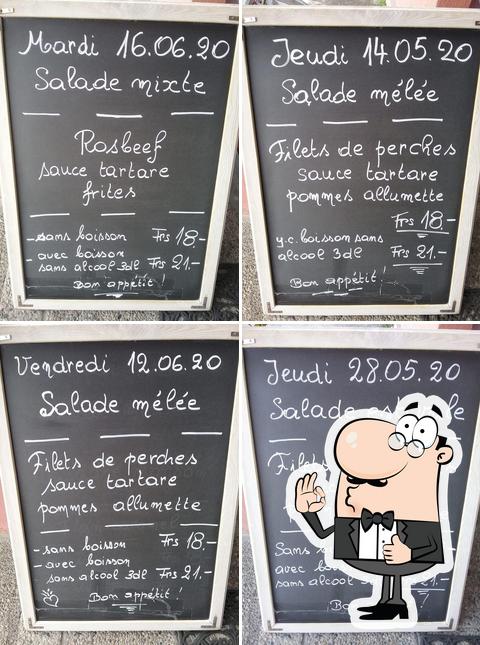 Mardi 16.06.20
Salade mixte
Rosbeef
sauce tartare
frites
- sans boisson Frs 18.-
- avec boisson
sans alcool 3dl Frs 21.-
Bon appétit !
Jeudi 14.05.20
Salade mêlée
Filets de perches
sauce tartare
pommes allumette
Frs 18.-
y.c. boisson sans
alcool 3dl Frs 21.-
Bon appétit !
Vendredi 12.06.20
Salade mêlée
Filets de perches
sauce tartare
pommes allumette
- sans boisson Frs 18.-
- avec boisson
sans alcool 3dl Frs 21.-
Bon appétit !
Jeudi 28.05.20
Salade
Filets
sans
avec
sans alcool 21.-